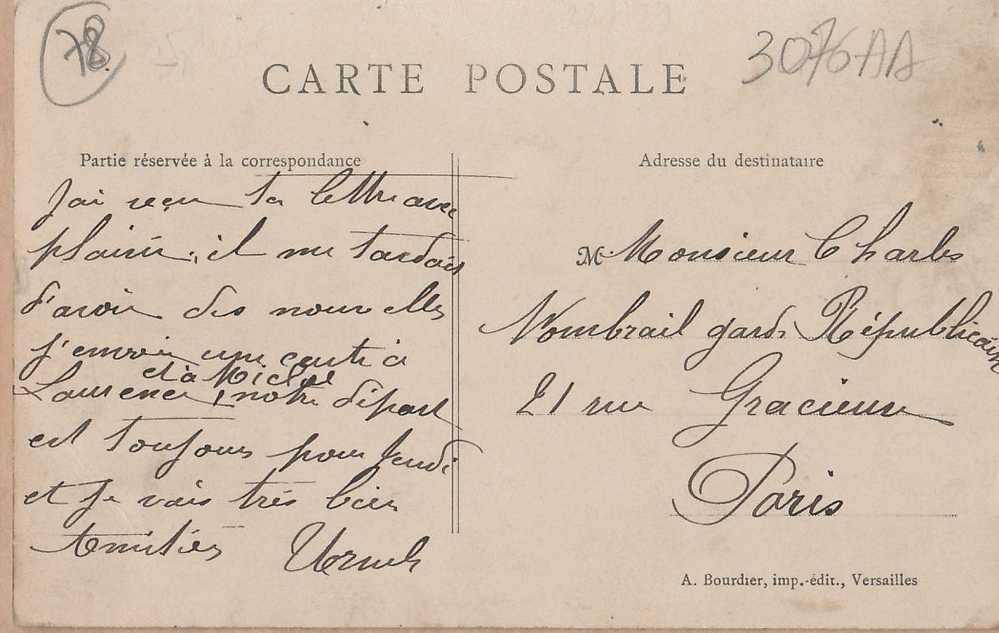 78
3076AA
CARTE POSTALE
Partie réservée à la correspondance
J'ai reçu ta lettre avec
plaisir, il me tardais
d'avoir des nouvelles
j'envoie une carte à
et à Michel
Laurence, notre départ
est toujours pour jeudi
et je vais très bien
Amitiés
Adresse du destinataire
M Monsieur Charles
Nombrail garde Républicain
21 rue Gracieuse
Paris
A. Bourdier, imp.-édit., Versailles